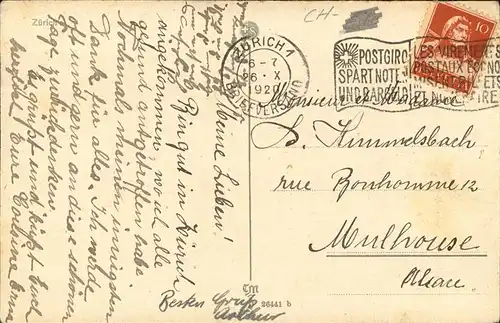 Zürich
CH-
ZÜRICH 1
26.X
1920
BRIEFVERSAND
POSTGIRO
SPART NOTEN
UND BARGELD
LES VIREMENTS
POSTAUX
10
Meine Lieben!
Bin gut in Zürich
angekommen, wo ich alle
gesund angetroffen habe
Nochmals meinen innigsten
Dank für alles. Ich werde
oft und gern an diese schönen
Tage zurückdenken.
Es grüsst und küsst Euch
herzlichst Eure
Monsieur et Madame
S. Himmelsbach
rue Bonhomme 12
Mulhouse
Alsace
Besten Gruss
Arthur
26441 b